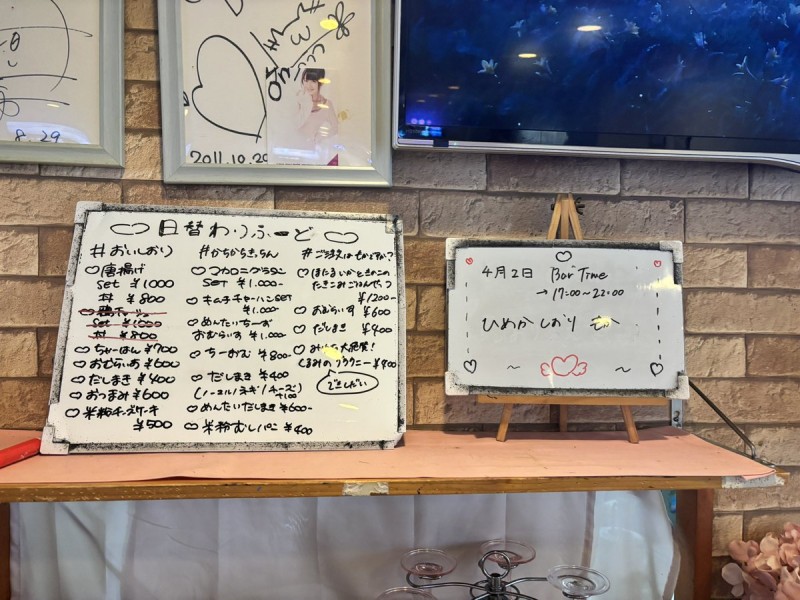 8.29
2011.10.29
日替わりふーど
#おいしおり
♡唐揚げ
set ¥1000
丼 ¥800
set ¥1000
丼 ¥800
♡ちゃーはん ¥700
♡おむらいす ¥600
♡だしまき ¥400
♡おつまみ ¥600
♡米粉チーズケーキ
¥500
#かちからきっちん
♡マカロニグラタン
SET ¥1.000-
♡キムチチャーハンSET
¥1.000-
♡めんたいちーず
おむらいす ¥1.000-
♡ちーおむ ¥800-
♡だしまき ¥400
(ノーマル/ネギ/チーズ)
+100
♡めんたいだしまき ¥600-
♡米粉むしパン ¥400
#ご注文はもかですか?
♡ほたるいかときのこの
たきこみごはんやっつ
¥1200-
♡おむらいす ¥600
♡だしまき ¥400
♡みんな大好き!
くるみのブラウニー ¥400
4月2日 Bar Time
→17:00~22:00
ひめか しおり もか